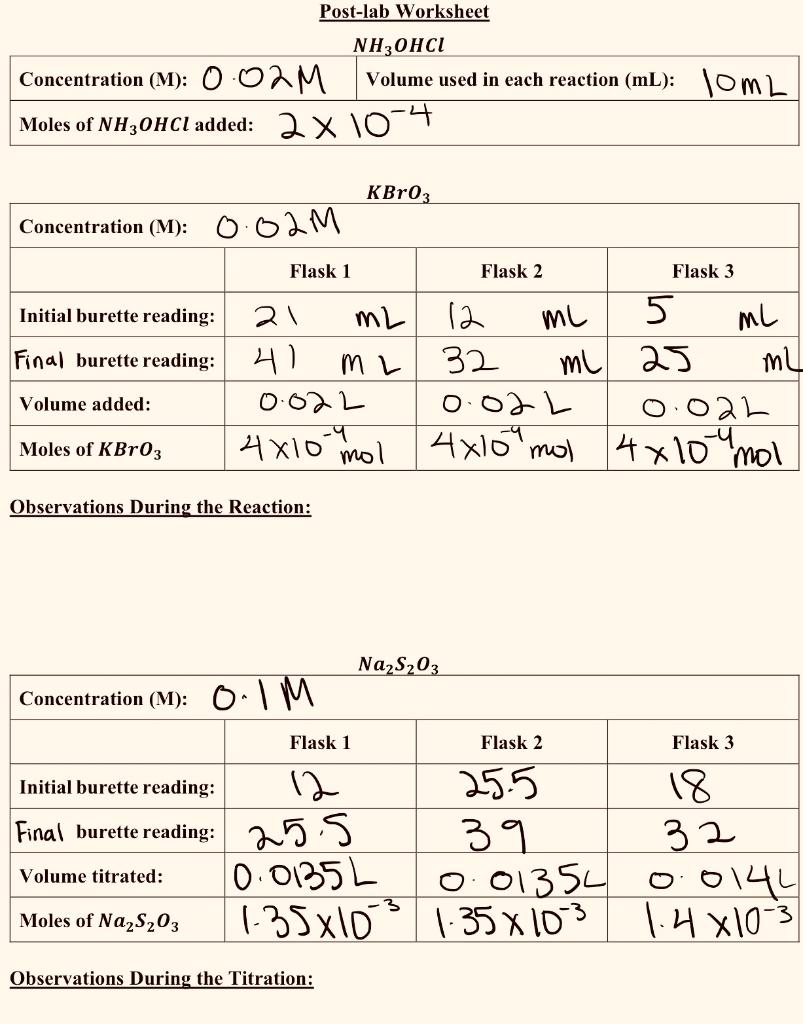 Post-lab Worksheet
NH₃OHCl
Concentration (M): 0.02M Volume used in each reaction (mL): 10mL
Moles of NH₃OHCl added: 2 x 10⁻⁴
KBrO₃
Concentration (M): 0.02M
Flask 1 Flask 2 Flask 3
Initial burette reading: 21 mL 12 mL 5 mL
Final burette reading: 41 mL 32 mL 25 mL
Volume added: 0.02L 0.02L 0.02L
Moles of KBrO₃ 4x10⁻⁴ mol 4x10⁻⁴ mol 4x10⁻⁴ mol
Observations During the Reaction:
Na₂S₂O₃
Concentration (M): 0.1M
Flask 1 Flask 2 Flask 3
Initial burette reading: 12 25.5 18
Final burette reading: 25.5 39 32
Volume titrated: 0.0135L 0.0135L 0.014L
Moles of Na₂S₂O₃ 1.35x10⁻³ 1.35x10⁻³ 1.4x10⁻³
Observations During the Titration: